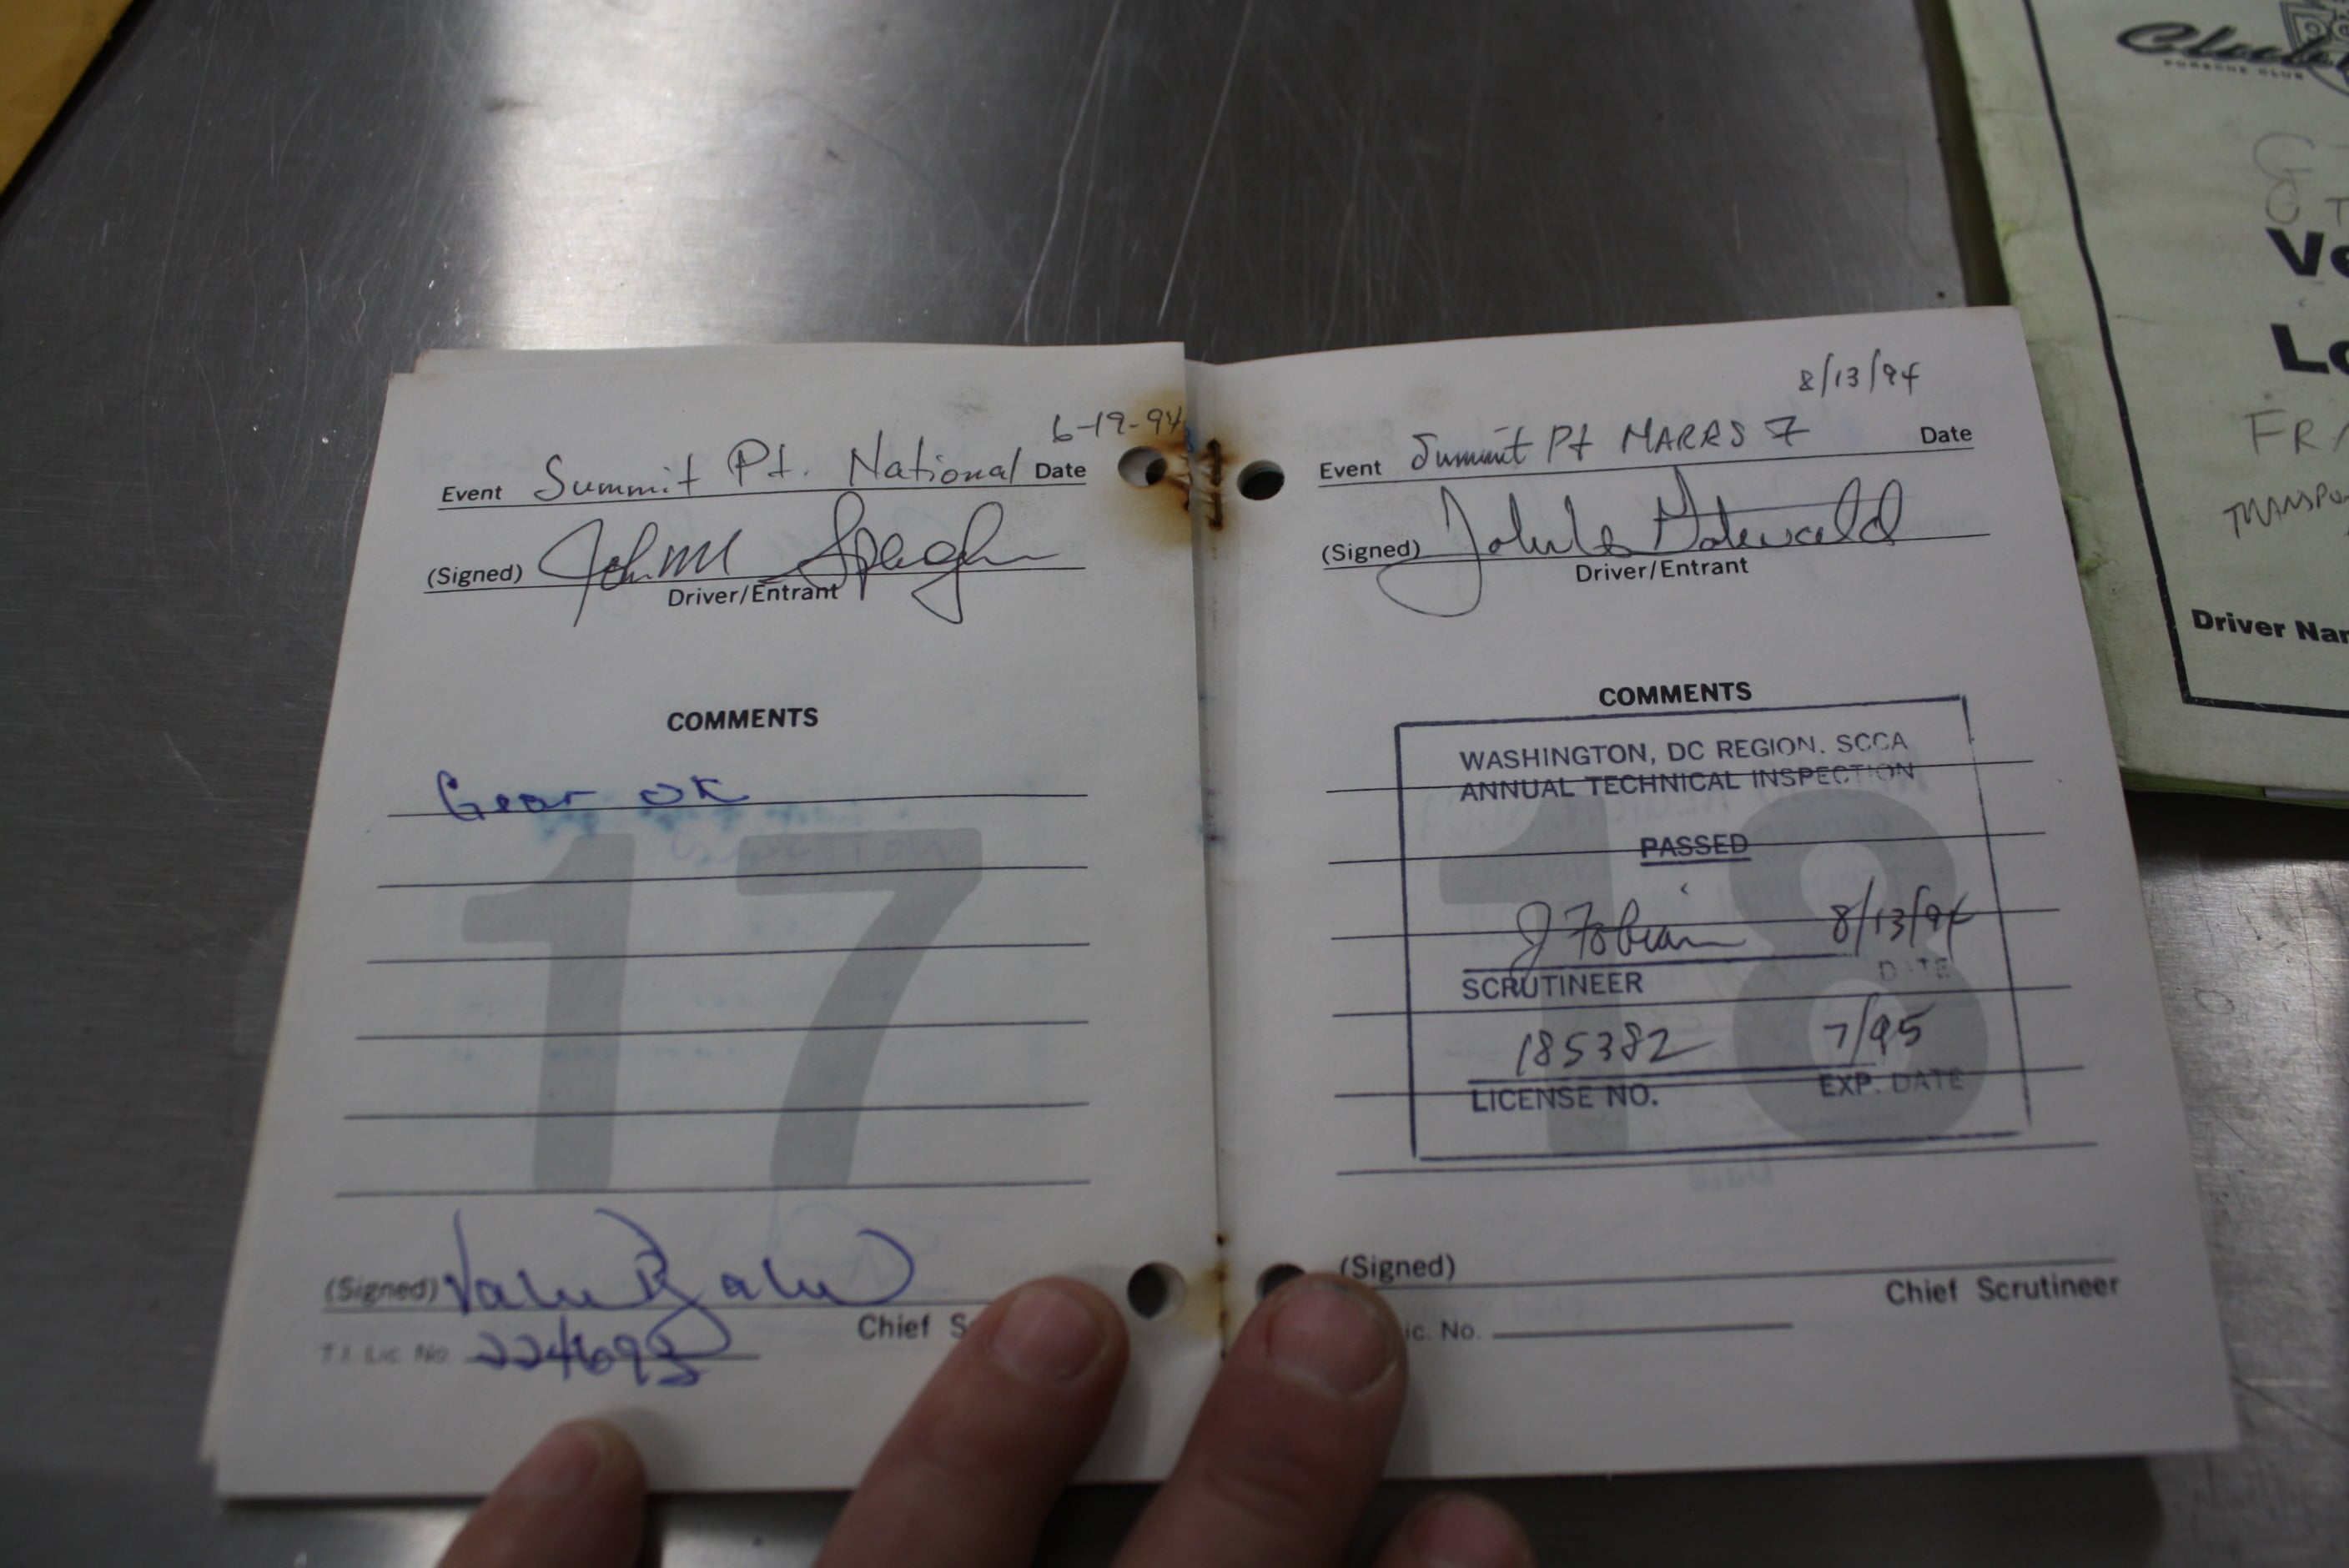 6-19-94
Event Summit Pt. National Date
(Signed) John M
Driver/Entrant
COMMENTS
Gear OK
17
(Signed)
Chief S
T.I. Lic. No. 224693
8/13/94
Event Summit Pt MARRS 7 Date
(Signed)
Driver/Entrant
COMMENTS
WASHINGTON, DC REGION. SCCA
ANNUAL TECHNICAL INSPECTION
PASSED
18
J Fobian 8/13/94
SCRUTINEER DATE
185382 7/95
LICENSE NO. EXP. DATE
(Signed)
Chief Scrutineer
ic. No.
Club
PORSCHE CLUB
Ve
Lo
FRA
TRANSPO
Driver Nam